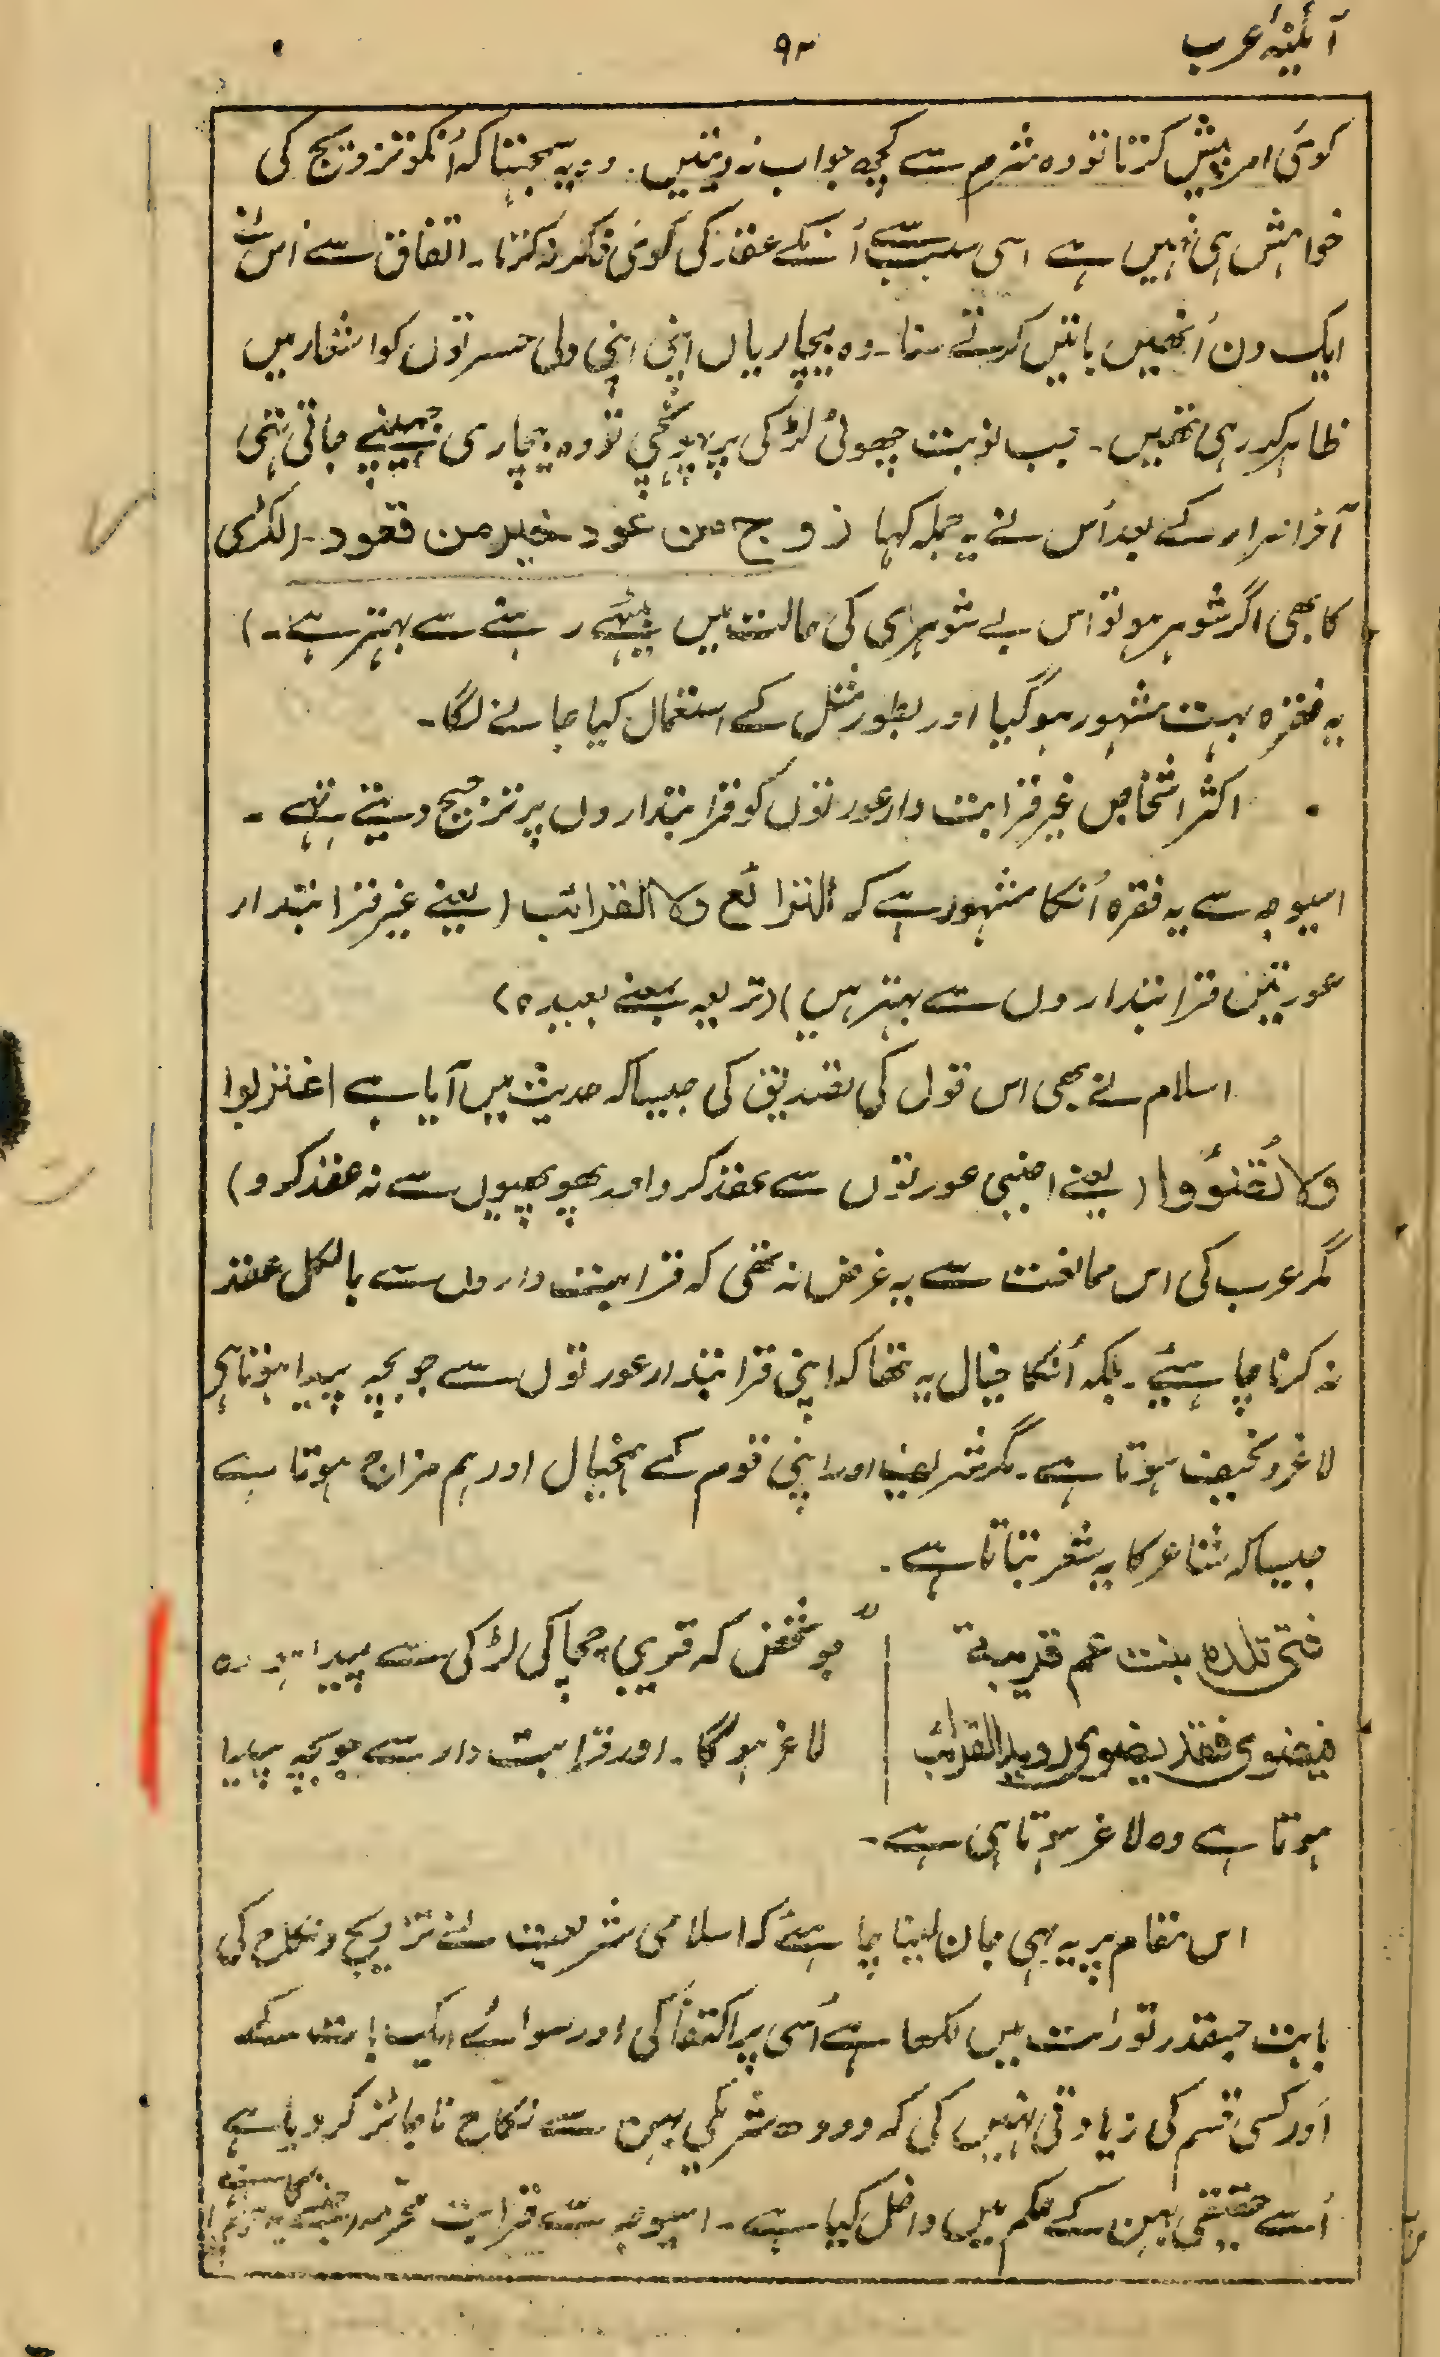 آئینۂ عرب
۹۳
کوئی امر پیش کرتا تو وہ شرم سے کچھ جواب نہ دیتیں۔ وہ یہ سمجہتا کہ اُنکو تزویج کی
خواہش ہی نہیں ہے اسی سبب سے اُنکے عقد کی کوئی فکر نہ کرتا۔ اتفاق سے اُس نے
ایک دن اُنھیں باتیں کرتے سنا۔ وہ بیچاریاں اپنی اپنی دلی حسرتوں کو اشعار میں
ظاہر کر رہی تھیں۔ جب نوبت چھوٹی لڑکی پر پہونچی تو وہ بیچاری جھینپے جاتی تہی
آخر اصرار کے بعد اُس نے یہ جملہ کہا زوج من عود خیر من قعود۔ (لکڑی
کا بھی اگر شوہر ہو تو اس بے شوہری کی حالت میں بیٹہے رہنے سے بہتر ہے۔)
یہ فقرہ بہت مشہور ہو گیا اور بطور مثل کے استعمال کیا جانے لگا۔
اکثر اشخاص غیر قرابت دار عورتوں کو قرابتداروں پر ترجیح دیتے تہے۔
اسیوجہ سے یہ فقرہ اُنکا مشہور ہے کہ النزائع ولا القرائب (یعنے غیر قرابتدار
عورتیں قرابتداروں سے بہتر ہیں) (نزیعہ بمعنے بعیدہ)
اسلام نے بھی اس قول کی تصدیق کی جیسا کہ حدیث میں آیا ہے اغتربوا
ولا تُضْوُوا (یعنے اجنبی عورتوں سے عقد کرو اور پھوپھیوں سے نہ عقد کرو)
مگر عرب کی اس ممانعت سے یہ غرض نہ تھی کہ قرابت داروں سے بالکل عقد
نہ کرنا چاہئیے۔ بلکہ اُنکا خیال یہ تھا کہ اپنی قرابتدار عورتوں سے جو بچہ پیدا ہوتا ہے
لاغر و نحیف ہوتا ہے۔ مگر شریف اور اپنی قوم کے ہمخیال اور ہم مزاج ہوتا ہے
جیسا کہ شاعر کا یہ شعر بتاتا ہے۔
فتی تلدہ بنت عم قریبۃ | "جو شخص کہ قریبی چچا کی لڑکی سے پیدا ہو وہ
فیضوی فقد یضوی ردید القرائب | لاغر ہو گا۔ اور قرابت دار سے جو بچہ پیدا
ہوتا ہے وہ لاغر ہوتا ہی ہے۔
اس مقام پر یہ بہی جان لینا چاہئے کہ اسلامی شریعت نے تزویج و نکاح کی
بابت جسقدر تورات میں لکھا ہے اُسی پر اکتفا کی اور سوائے ایک بات کے
اَور کسی قسم کی زیادتی نہیں کی کہ دودہ شریکی بہن سے نکاح ناجائز کر دیا ہے
اُسے حقیقی بہن کے حکم میں داخل کیا ہے۔ اسیوجہ سے قرابت محرمہ